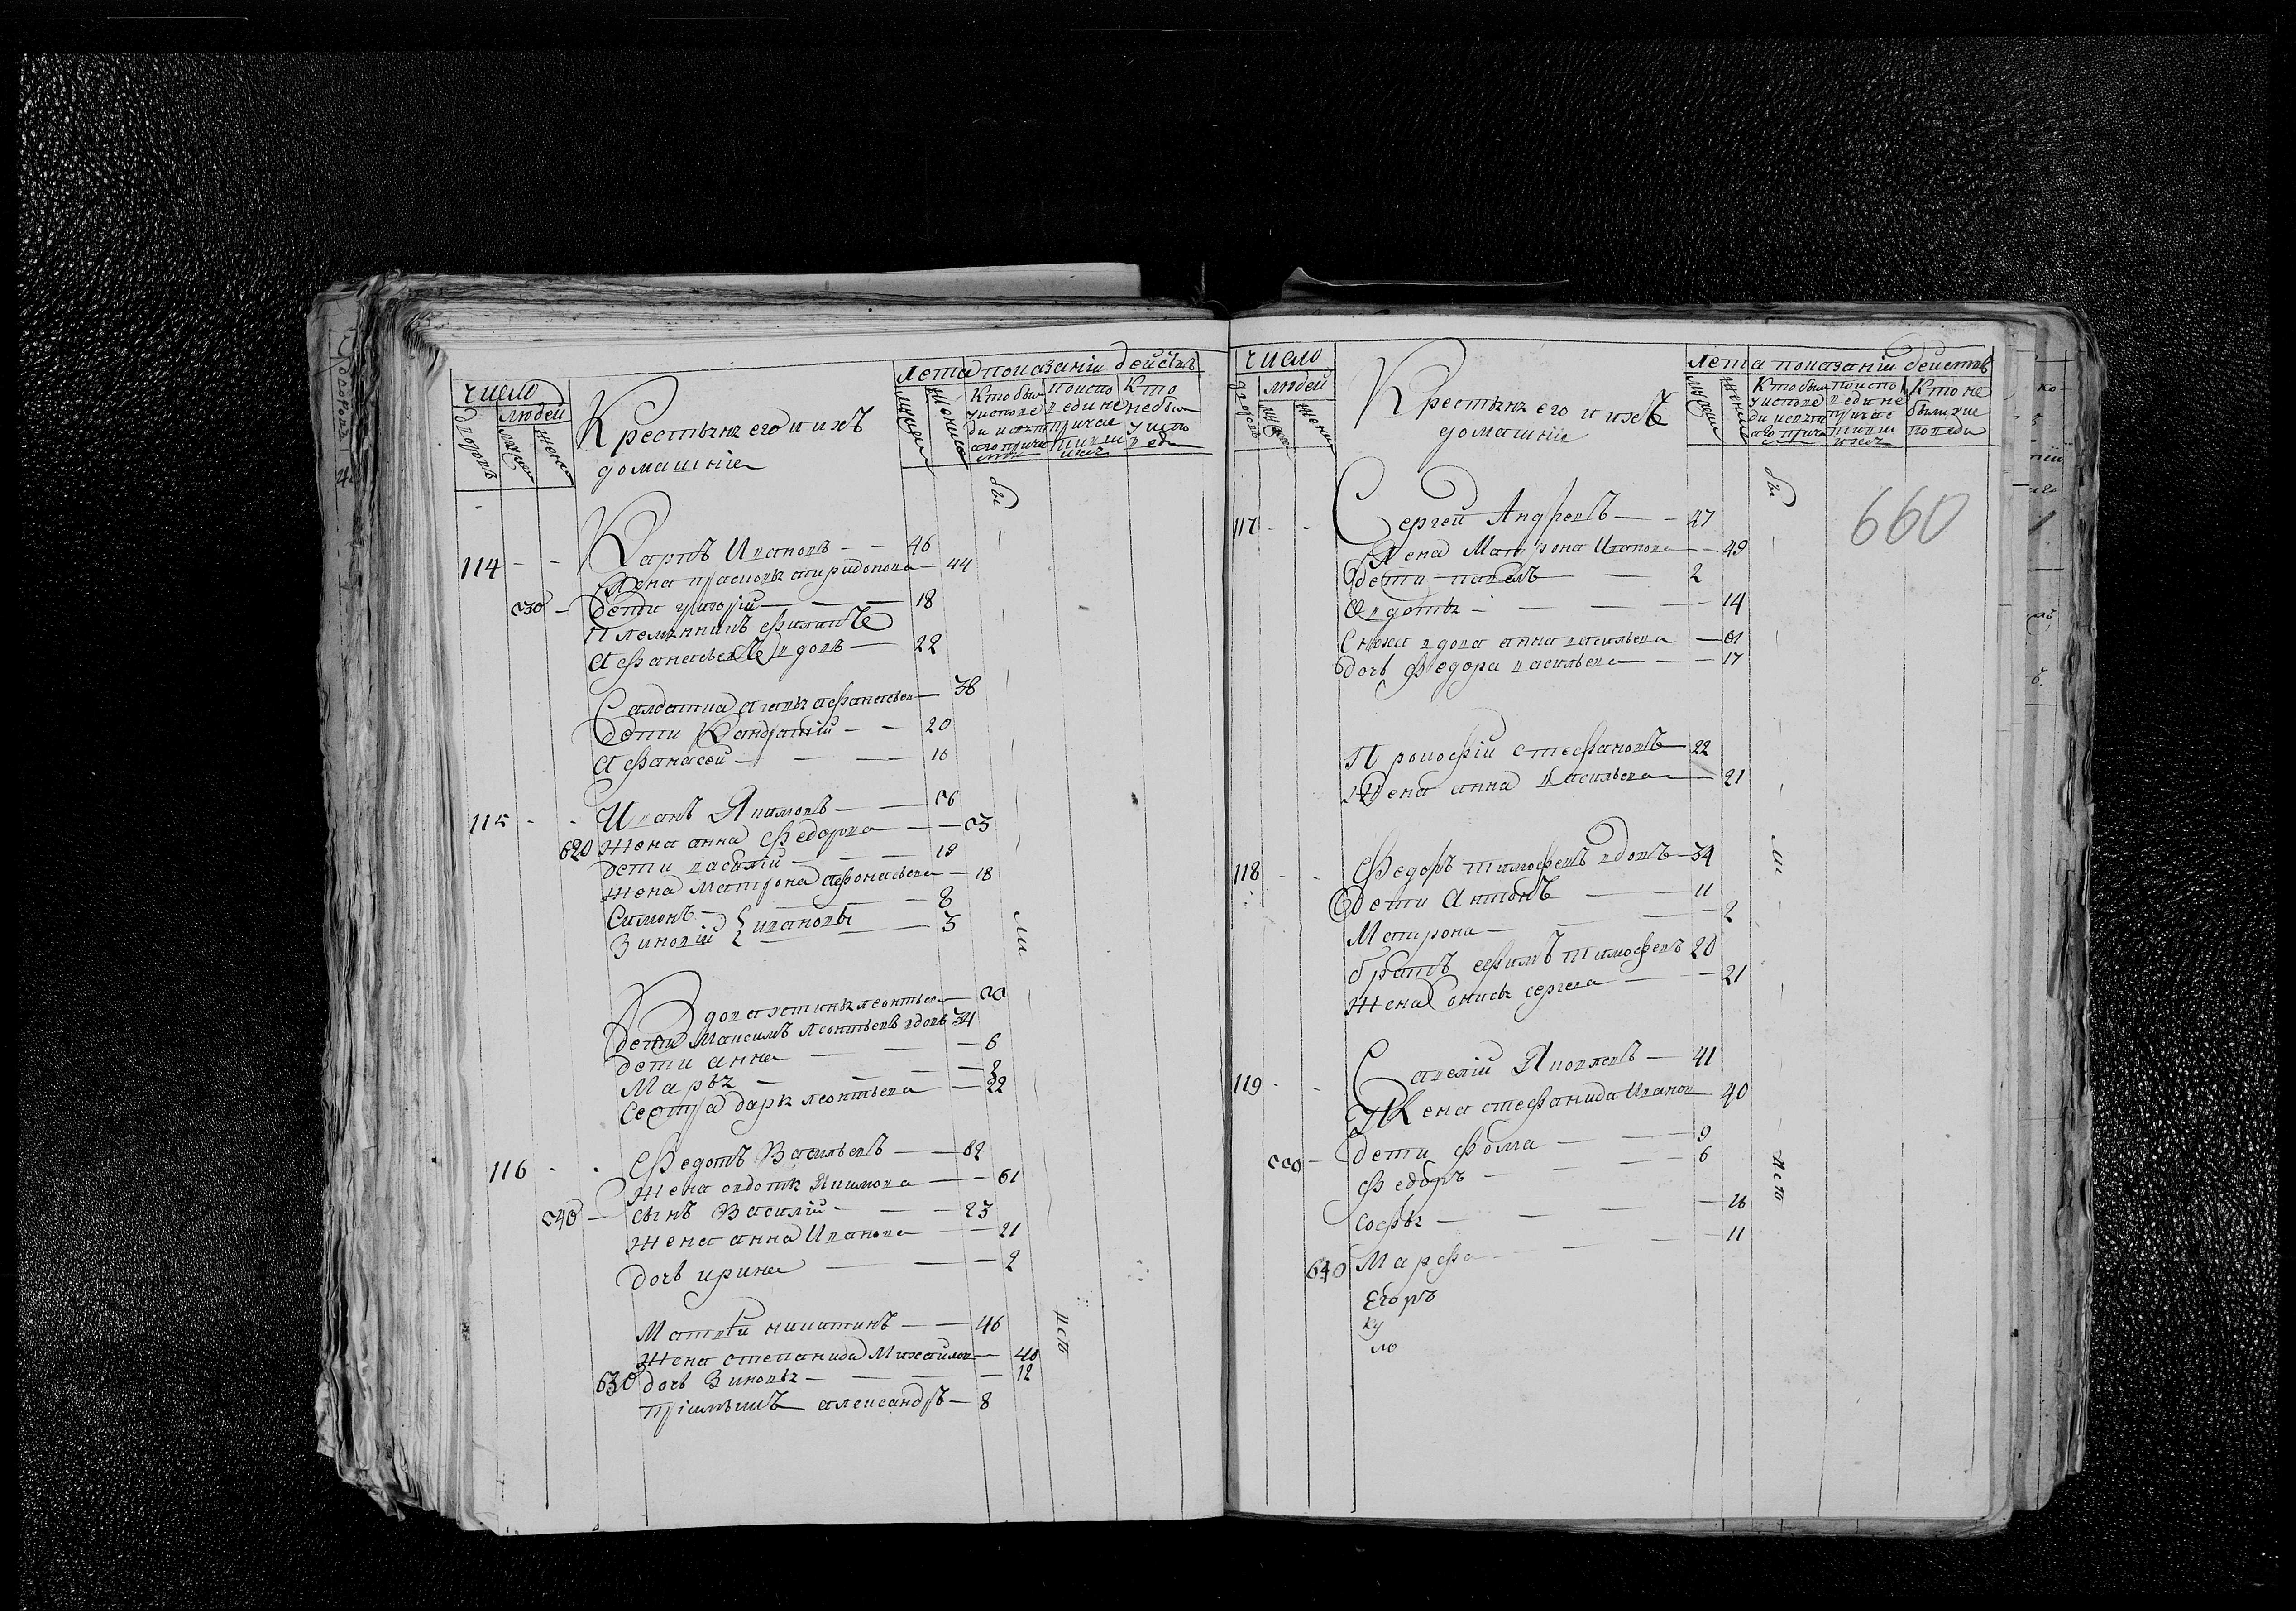 число
дворовъ
людей
мужеск
женск
Крестьянъ его и ихъ
домашние
лета показанiи действъ
мужеск
женска
Кто были
у испове
ди и свят
аго прича
стия
по испо
веди не
прича
стилис
Кто
не был
у испо
веди
бы
114 Карпъ Ивановъ 46
Жена прасковья спиридонова 44
дети григорiй 18
Племянникъ филиппъ
Афанасьевъ вдовъ 22
Салдатка агафья афанасьев 38
дети Кандратiй 20
Афанасей 10
115 Иванъ Якимовъ
620 Жена анна федорова
дети василiй 19
жена матрона афонасьева 18
Симонъ 8
Зиновiй ивановы 3
ли
Вдова устинья леонтьева
дети Максимъ леонтьевъ вдовъ 34
дети анна 6
Марья 2
сестра дарья леонтьева 22
116 Федотъ Васильевъ 62
жена авдотья Якимова 61
сынъ Василiй 23
жена анна Иванова 21
дочь ирина 2
Матвей никитинъ 46
жена степанида Михайлов 40
630 дочь Зиновья 12
прiимышъ александръ 8
исп
число
дворовъ
людей
мужеск
женск
Крестьянъ его и ихъ
домашнiе
лета показанiи действъ
мужеска
женска
Кто был
у испове
ди и свят
аго прича
по испо
веди не
прича
стили
ихся
Кто не
были у ис
поведи
бы
660
117 Сергей Андреевъ 47
Жена Матрона Иванова 49
дети павелъ 2
Федотья 14
Сноха вдова анна васильева 61
дочь федора васильева 17
Прокофiй стефановъ 22
Жена анна Васильева 21
118 Федоръ тимофеевъ вдовъ 34
дети Антонъ 11
Матрона 2
братъ ефимъ тимофеевъ 20
жена анисья сергеева 21
ли
119 Савелiй Яковлевъ 41
Жена стефанида Иванов 40
дети фома 9
федоръ 6
софья 16
640 Марфа 11
исп
Егоръ
ку
ло